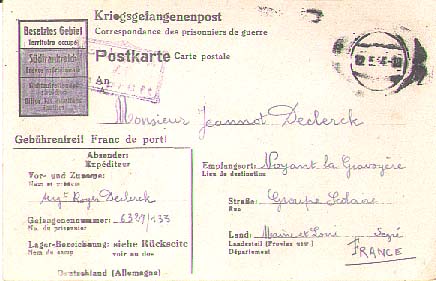 Kriegsgefangenenpost
Correspondance des prisonniers de guerre
Besetztes Gebiet
Territoire occupé
Postkarte Carte postale
An
Monsieur Jeannot Declerck
Gebührenfrei! Franc de port!
Absender:
Expéditeur
Vor- und Zuname:
Nom et prénom
Roger Declerck
Gefangenennummer: 6329/133
No. du prisonnier
Lager-Bezeichnung: siehe Rückseite
Nom du camp voir au dos
Deutschland (Allemagne)
Empfangsort: Noyant la Gravoyère
Lieu de destination
Straße: Groupe Scolaire
Rue
Land: Maine et Loire Segré
Landesteil (Provinz usw.)
Département
FRANCE